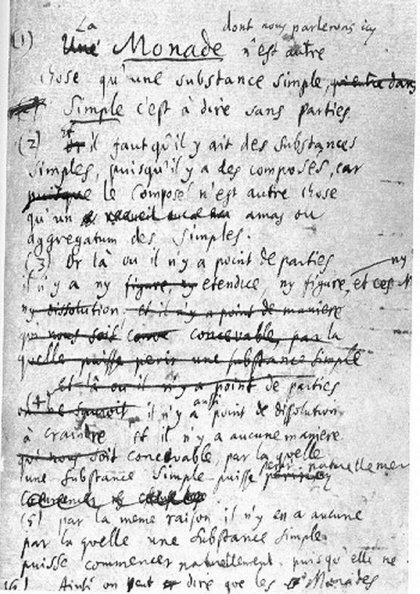 La dont nous parlerons icy
(1) Une Monade n'est autre
chose qu'une substance simple, qui entre dans
Simple c'est à dire sans parties
(2) et il faut qu'il y ait des substances
simples, puisqu'il y a des composés, car
puisque le composé n'est autre chose
qu'un amas ou
aggregatum des simples.
(3) Or là ou il n'y a point de parties ny
il n'y a ny figure, ny etendue, ny figure, et
ny dissolution. et il n'y a point de maniere
qui nous soit concevable, par la
quelle puisse perir une substance simple
et là ou il n'y a point de parties
(4) il n'y a aussi point de dissolution
à craindre et il n'y a aucune maniere
qui nous soit concevable, par la quelle
une substance simple puisse perir naturellement
(5) par la meme raison il n'y en a aucune
par la quelle une substance simple
puisse commencer naturellement, puisqu'elle ne
(6) Ainsi on peut dire que les Monades